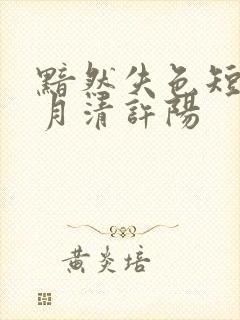 黯然失色短
月清許陽
黄炎培